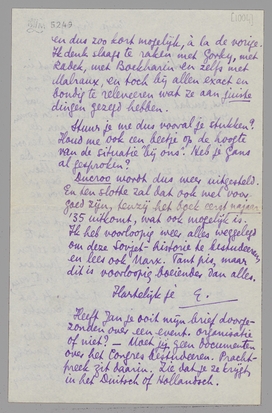 5249
en dus zoo kort mogelijk, à la de vorige.
Ik denk slaags te raken met Gorky, met
Radek, met Boekharin en zelfs met
Malraux, en toch bij allen exact en
bondig te releveeren wat ze aan juiste
dingen gezegd hebben.
Stuur je me dus vooral je stukken?
Houd me ook een beetje op de hoogte
van de situatie bij ons. Heb je Gans
al gesproken?
Ducroo wordt dus weer uitgesteld.
En ten slotte zal dat ook niet voor
goed zijn, tenzij het boek eerst najaar
'35 uitkomt, wat ook mogelijk is.
Ik heb voorloopig weer alles weggelegd
om deze Sovjet-historie te bestudeeren,
en lees ook Marx. Tant pis, maar
dit is voorloopig boeiender dan alles.
Hartelijk je E.
Heeft Jan je ooit mijn brief doorge-
zonden over een event. organisatie
of niet? — Moet jij geen documenten
over het Congres bestudeeren. Pracht-
preek zit daarin. Zie dat je ze krijgt,
in het Duitsch of Hollandsch.